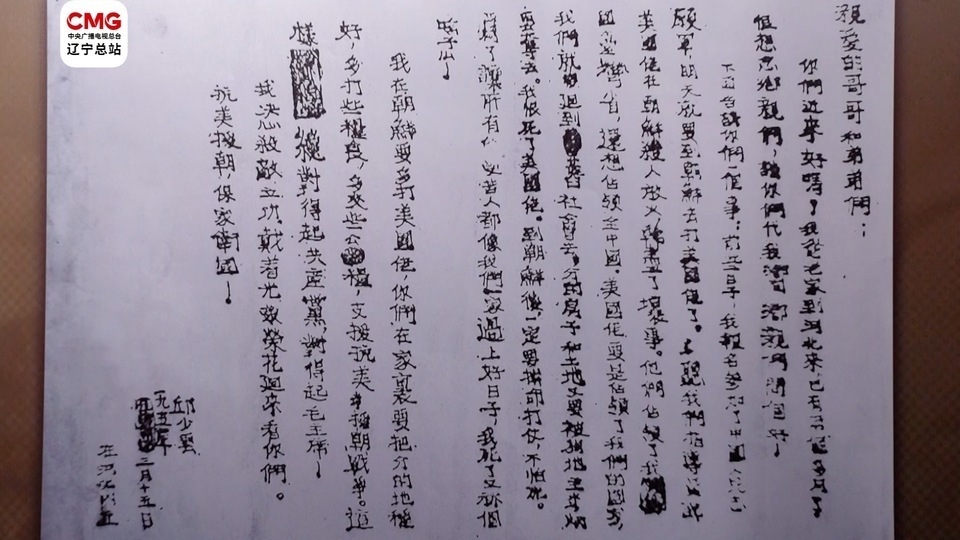 CMG
中央广播电视总台
辽宁总站
親爱的哥哥和弟弟們：
你們近来好嗎？我從老家到河北来，已有
但想念鄉親們，請你們代我 鄉親們問個好！
下面告訴你們一個事：前些日子，我報名参加了中國人民志
願軍，明天就要到朝鮮去打美國佬了。
美國佬在朝鮮殺人放火， 壞事。他們佔領了我
國 灣省，還想佔領全中國。美國佬要是佔領了我們的國家，
我們就 回到 舊社會去。分的房子和土地又要被 地主
去。我恨死了美國佬。到朝鮮後，一定要 打仗，不怕死。
爲了讓所有 受苦人都像我們一家過上好日子，我死了又 個
啥子！
我在朝鮮要多打美國佬，你們在家裏要把分的地種
好，多打些糧食，多交些公糧，支援抗美援朝戰争。這
樣 對得起共産黨，對得起毛主席！
我决心殺敵立功，戴着光 榮花迴来看你們。
抗美援朝保家衛國！
邱少雲
一九五 年
三月十五日